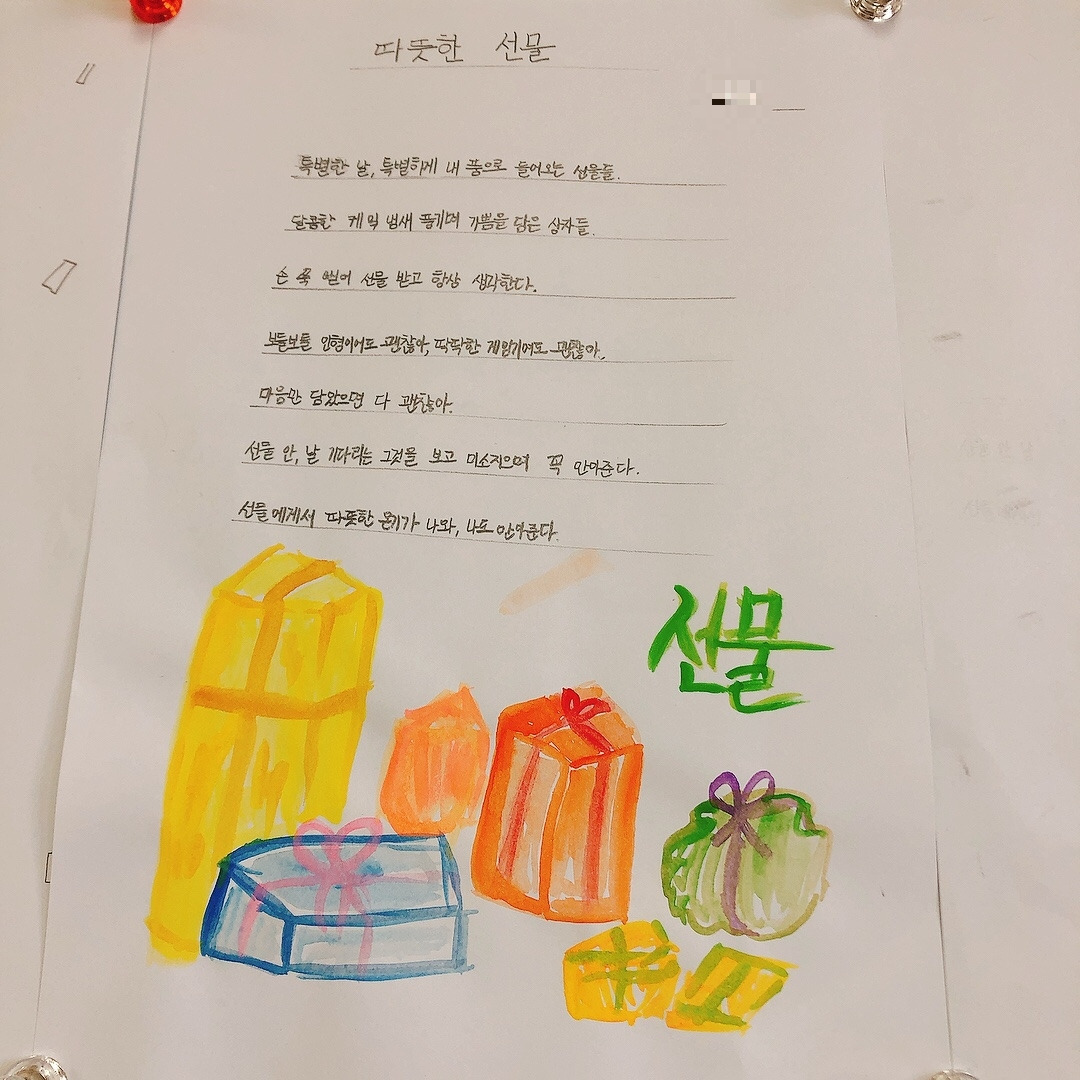 따뜻한 선물
특별한 날, 특별하게 내 품으로 들어오는 선물들.
달콤한 케익 냄새 풍기며 기쁨을 담은 상자들.
손 쭉 뻗어 선물 받고 항상 생각한다.
보들보들 인형이어도 괜찮아, 딱딱한 게임기여도 괜찮아.
마음만 담았으면 다 괜찮아.
선물 안, 날 기다리는 그것을 보고 미소지으며 꼭 안아준다.
선물에게서 따뜻한 온기가 나와, 나도 안아준다.
선물